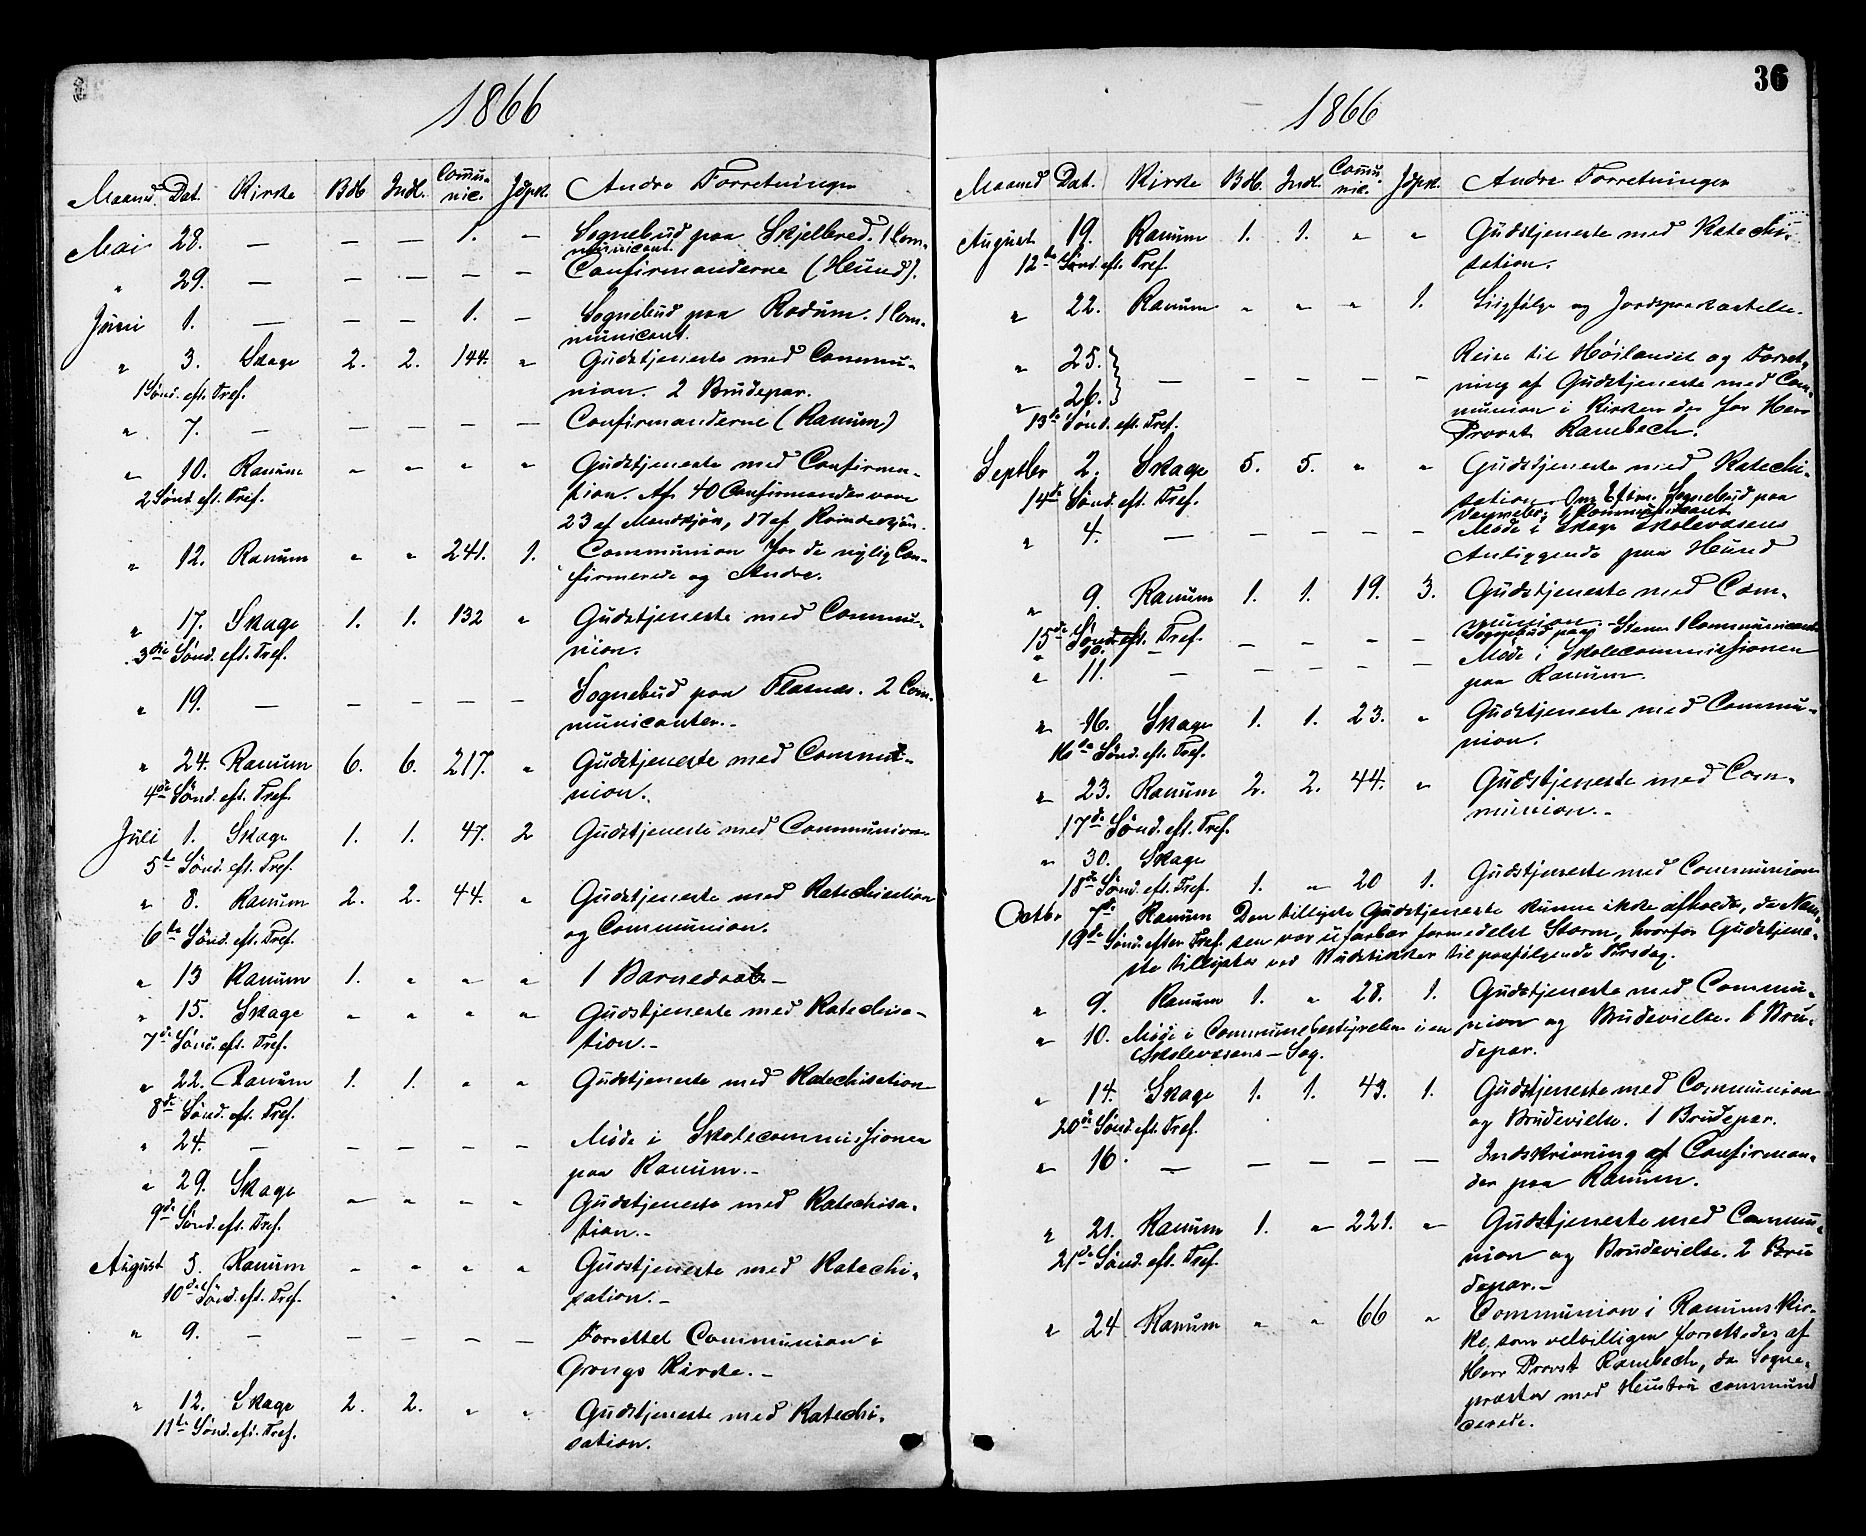 1866
Maaned. Dat. Kirke Bdb Indl. Commu- nic. Jdpk. Andre Forretninger
Mai 28. — — — 1. — Sognebud paa Skjelbred. 1 Com-
municant.
" 29. — — — — — Confirmanderne (Heund).
Juni 1. — — — 1. — Sognebud paa Rodum. 1 Com-
municant.
" 3. Skage 2. 2. 144. " Gudstjeneste med Commu-
1 Sønd. eft. Tref. nion. 2 Brudepar.
" 7. — — — — — Confirmanderne (Ranum)
" 10. Ranum " " " " Gudstjeneste med Confirma-
2 Sønd. eft. Tref. tion. Af 40 Confirmander vare
23 af Mandkjøn, 17 af Kvindekjøn.
" 12. Ranum " " 241. 1. Communion for de nylig Con-
firmerede og Andre.
" 17. Skage 1. 1. 132 " Gudstjeneste med Commu-
3die Sønd. eft. Tref. nion.
" 19. — — — — — Sognebud paa Flasnes. 2 Com-
municanter.-
" 24. Ranum 6. 6. 217. " Gudstjeneste med Commu-
4de Sønd. eft. Tref. nion.
Juli 1. Skage 1. 1. 47. 2 Gudstjeneste med Communion
5te Sønd. eft. Tref.
" 8. Ranum 2. 2. 44. " Gudstjeneste med Katechisation
6te Sønd. eft. Tref. og Communion.
" 13 Ranum 1. " " " 1 Barnedaab.-
" 15. Skage " " " " Gudstjeneste med Katechisa-
7de Sønd. eft. Tref. tion.-
" 22. Ranum 1. 1. " " Gudstjeneste med Katechisation
8de Sønd. eft. Tref.
" 24. — — — — — Møde i Skolecommissionen
paa Ranum.-
" 29. Skage " " " " Gudstjeneste med Katechisa-
9de Sønd. eft. Tref. tion.-
August 5. Ranum " " " " Gudstjeneste med Katechi-
10de Sønd. eft. Tref. sation.-
" 9. — — — — — Forrettet Communion i
Grongs Kirke.-
" 12. Skage 2. 2. " " Gudstjeneste med Katechi-
11te Sønd. eft. Tref. sation.
36
1866
Maaned Dat. Kirke Bdb. Indl. Commu- nic. Jdpk. Andre Forretninger
August 19. Ranum 1. 1. " " Gudstjeneste med Katechi-
12te Sønd. eft. Tref. sation.
" 22. Ranum " " " 1. Liigfølge og Jordpaakastelse.
" 25. Reise til Høilandet og Forret-
— — — — — ning af Gudstjeneste med Com-
" 26. munion i Kirken der for Herr
13de Sønd. eft. Tref. Provst Rambech.
Septbr 2. Skage 5. 5. " " Gudstjeneste med Katechi-
14de Sønd. eft. Tref. sation. Om Eftm. Sognebud paa
1 Communicant.
" 4. — — — — — Møde i Skage Skolevæsens
Anliggende paa Heund
" 9. Ranum 1. 1. 19. 3. Gudstjeneste med Com-
15de Sønd. eft. Tref. munion.
" 10. — — — — — Sognebud paa 1 Communicant.
" 11. — — — — — Møde i Skolecommissionen
paa Ranum.
" 16. Skage 1. 1. 23. " Gudstjeneste med Commu-
16de Sønd. eft. Tref. nion.
" 23. Ranum 2. 2. 44. " Gudstjeneste med Com-
17de Sønd. eft. Tref. munion.-
" 30. Skage
18de Sønd. eft. Tref. 1. " 20 1. Gudstjeneste med Communion
Octbr 7de Ranum Den tillyste Gudstjeneste kunne ikke afholdes, da Nam-
19de Sønd. efter Tref. sen var ufarbar formedelst Storm, hvorfor Gudstjene-
ste tillystes ved Budstikker til paafølgende Tirsdag.
" 9. Ranum 1. " 28. 1. Gudstjeneste med Commu-
nion og Brudevielse. 6 Bru-
depar.
" 10. Møde i Communebestyrelsen i en
Skolevæsens-Sag.
" 14. Skage 1. 1. 43. 1. Gudstjeneste med Communion
20de Sønd. eft. Tref. og Brudevielse. 1 Brudepar.
" 16. — — — — — Indskrivning af Confirman-
der paa Ranum.
" 21. Ranum 1. " 221. " Gudstjeneste med Commu-
21de Sønd. eft. Tref. nion og Brudevielse. 2 Bru
depar.-
" 24 Ranum " " 66 " Communion i Ranums Kir-
ke, som velvilligen forrettedes af
Herr Provst Rambech, da Sogne-
præsten med Heustru communi
cerede.